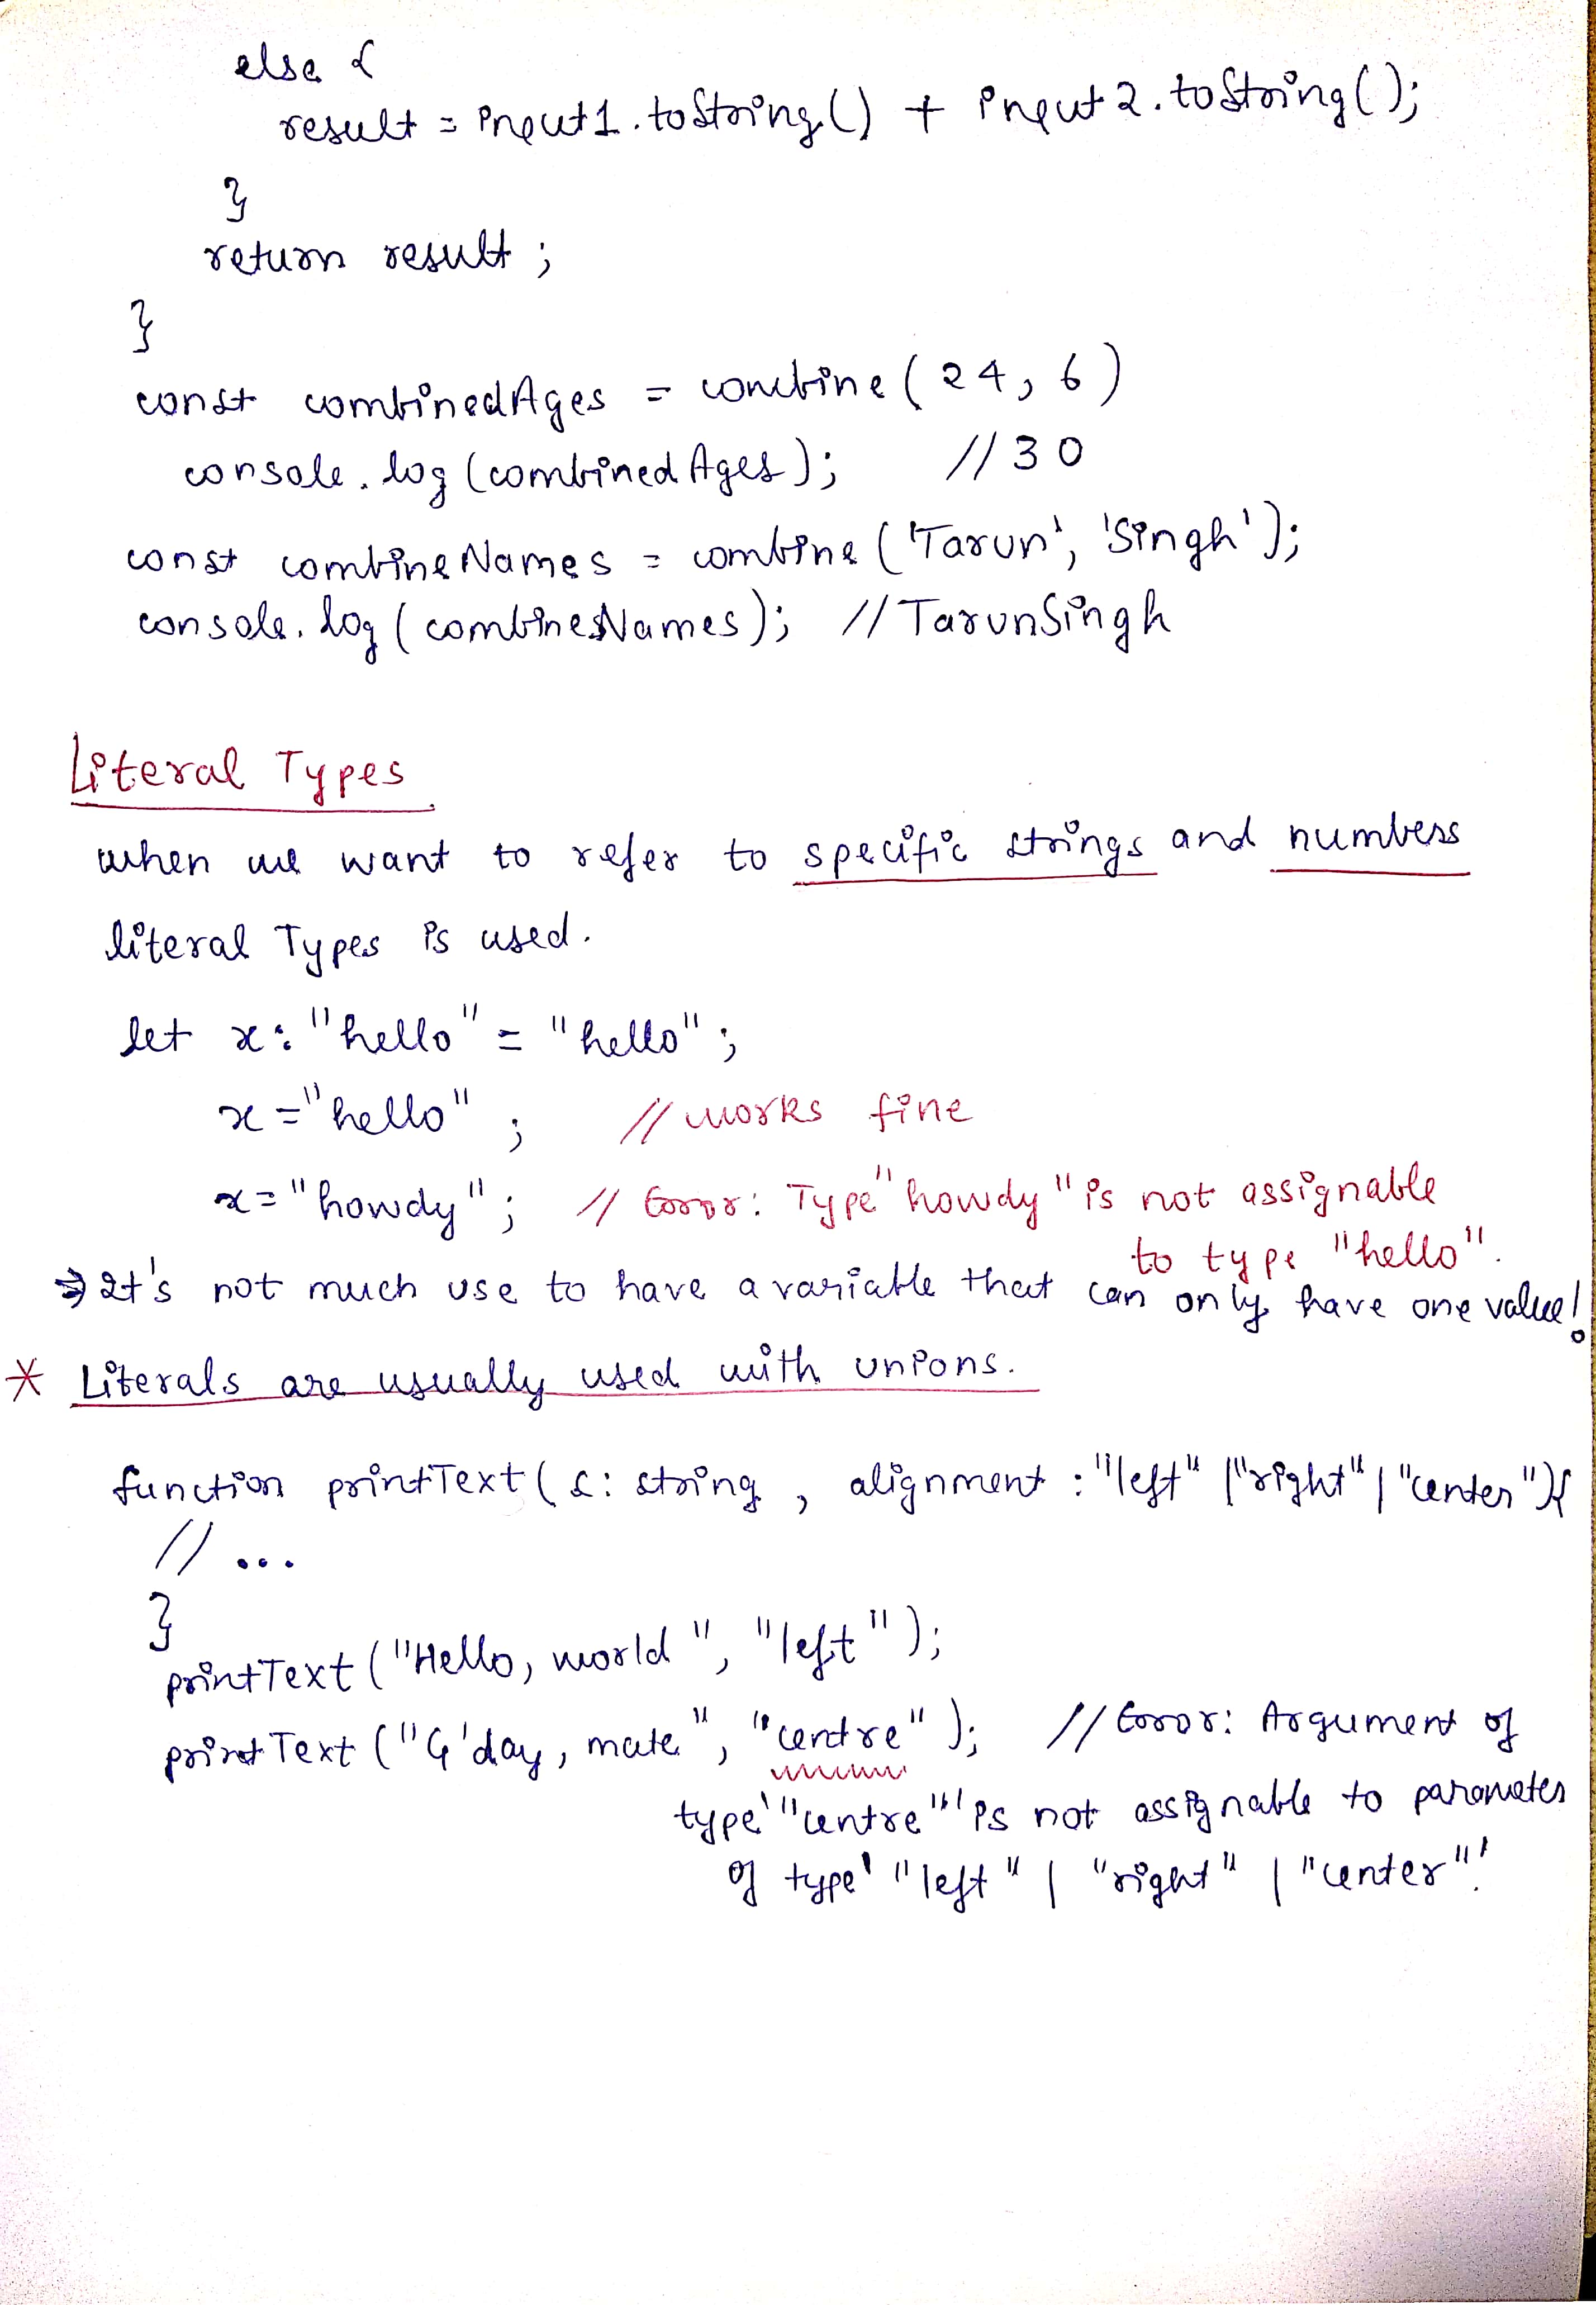 else {
result = input1.toString() + input2.toString();
}
return result ;
}
const combinedAges = combine ( 24, 6 )
console.log (combinedAges); //30
const combineNames = combine ('Tarun', 'Singh');
console.log ( combinesNames); // TarunSingh
Literal Types
when we want to refer to specific strings and numbers
literal Types is used.
let x: "hello" = "hello" ;
x = "hello" ; // works fine
x = "howdy" ; // Error: Type "howdy" is not assignable
to type "hello".
⇒ It's not much use to have a variable that can only have one value!
* Literals are usually used with unions.
function printText ( s: string , alignment : "left" | "right" | "center" ){
// ...
}
printText ( "Hello, world ", "left" );
printText ("G'day, mate", "centre" ); // Error: Argument of
type '"centre"' is not assignable to parameter
of type '"left" | "right" | "center"'.